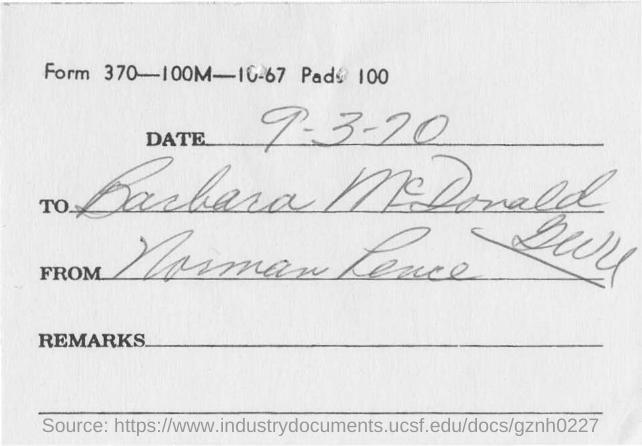 Form 370—100M—10-67 Pads 100
DATE 9-3-70
TO Barbara McDonald
GWU
FROM Norman Pence
REMARKS
Source: https://www.industrydocuments.ucsf.edu/docs/gznh0227